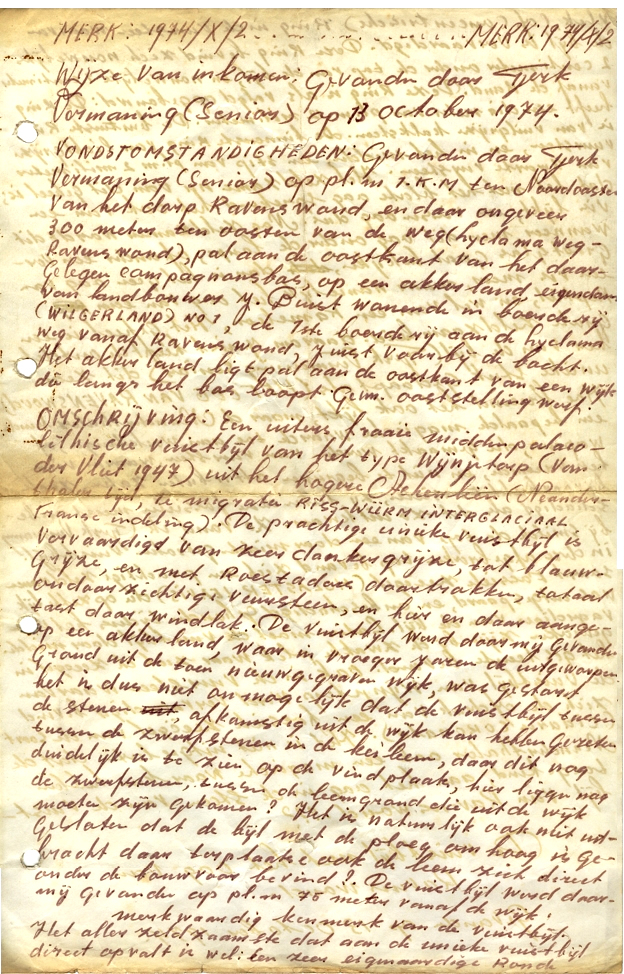 MERK: 1974/X/2 ................ MERK: 1974/X/2
Wijze van inkomen: Gevonden door Tjerk
Vermaning (Senior) op 13 October 1974.
VONDSTOMSTANDIGHEDEN: Gevonden door Tjerk
Vermaning (Senior) op pl.m 1.K.M ten Noordoosten
van het dorp Ravenswoud, en daar ongeveer
300 meter ten oosten van de weg (hyclama weg-
Ravenswoud), pal aan de oostkant van het daar-
gelegen compagnonsbos, op een akkerland eigendom
van landbouwer J. Buist wonende in boerderij
(WILGERLAND) NO 1, de 1ste boerderij aan de hyclama
weg vanaf Ravenswoud, juist voorbij de bocht.
Het akkerland ligt pal aan de oostkant van een wijk
die langs het bos loopt. Gem. ooststellingwerf.
OMSCHRIJVING: Een uiterst fraaie midden palaeo-
lithische vuistbijl van het type Wijnjeterp (Van
der Vliet 1947) uit het hogere (Neander-
thaler tijd, RISS-WÜRM INTERGLACIAAL
Franse indeling). De prachtige unieke vuistbijl is
vervaardigd van zeer donkergrijze, tot blauw-
grijze, en met Roestaders doortrokken, totaal
ondoorzichtige vuursteen, en hier en daar aange-
tast door windlak. De vuistbijl werd door mij gevonden
op een akkerland, waar in vroeger jaren de uitgeworpen
grond uit de toen nieuwgegraven wijk, was gestort
het is dus niet onmogelijk dat de vuistbijl tussen
de stenen afkomstig uit de wijk kan hebben gezeten
tussen de zwerfstenen in de keileem, daar dit nog
duidelijk is te zien op de vindplaats, hier liggen nog
de zwerfstenen, tussen de leemgrond die uit de wijk
moeten zijn gekomen? Het is natuurlijk ook niet uit-
gesloten dat de bijl met de ploeg omhoog is ge-
bracht daar terplaatse ook de leem zich direct
onder de bouwvoor bevind?. De vuistbijl werd door-
mij gevonden op pl.m 75 meter vanaf de wijk.
merkwaardig kenmerk van de vuistbijl.
Het aller zeldzaamste dat aan de unieke vuistbijl
direct opvalt is wel: een zeer eigenaardige Rond